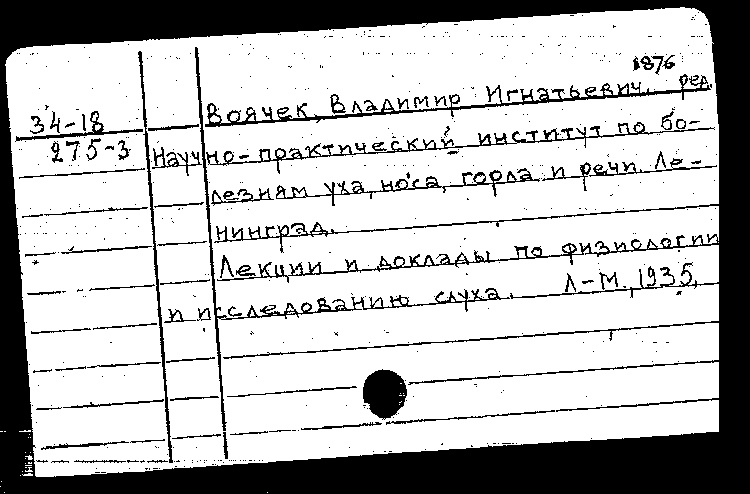 1876
34-18 Воячек, Владимир Игнатьевич, ред.
275-3 Научно-практический институт по бо-
лезням уха, носа, горла и речи. Ле-
нинград.
Лекции и доклады по физиологии
и исследованию слуха. Л-М., 1935.